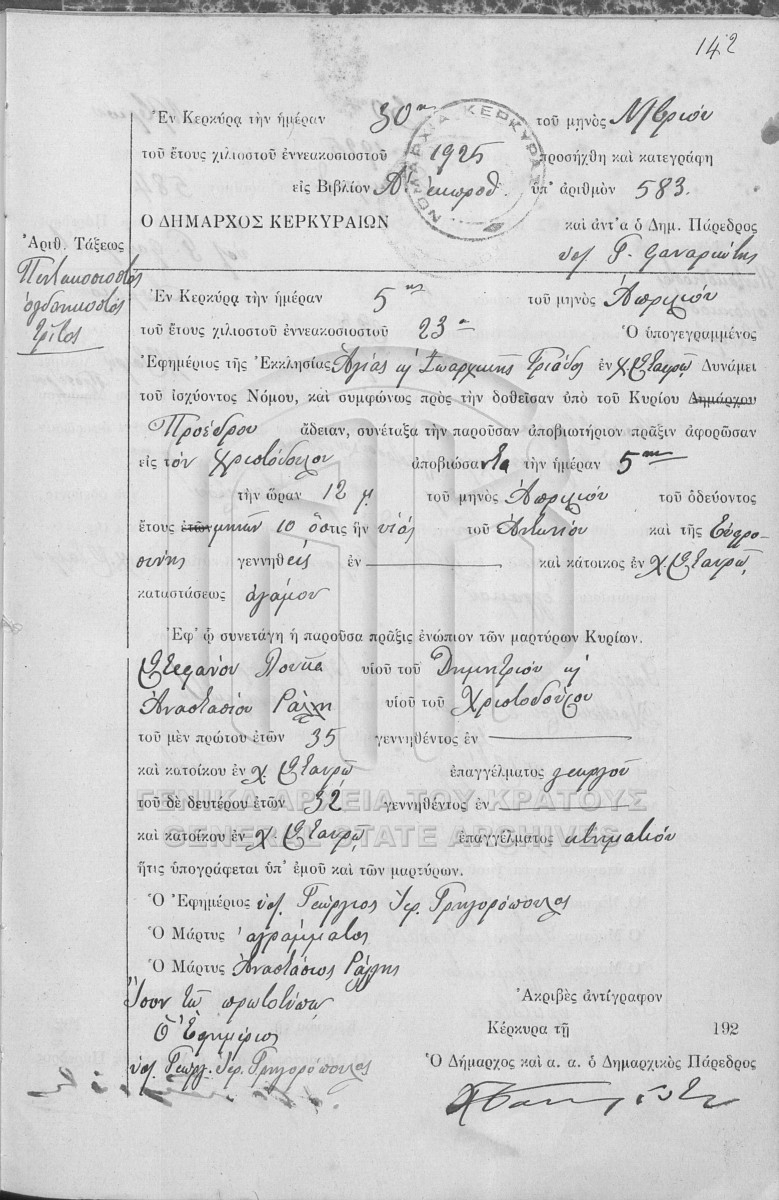 142
Ἐν Κερκύρᾳ τὴν ἡμέραν 30ην τοῦ μηνὸς
τοῦ ἔτους χιλιοστοῦ ἐννεακοσιοστοῦ 1925 προσήχθη καὶ κατεγράφη
ΝΟΜΑΡΧΙΑ ΚΕΡΚΥΡΑΣ
εἰς Βιβλίον Α! ἐκπροθ. ὑπ' ἀριθμὸν 583.
Ο ΔΗΜΑΡΧΟΣ ΚΕΡΚΥΡΑΙΩΝ καὶ ἀντ'α ὁ Δημ. Πάρεδρος
Ἀριθ. Τάξεως
Πεντακοσιοστὸς
ὀγδοηκοστὸς
τρίτος
Ἐν Κερκύρᾳ τὴν ἡμέραν 5ην τοῦ μηνὸς Ἀπριλίου
τοῦ ἔτους χιλιοστοῦ ἐννεακοσιοστοῦ 23ου Ὁ ὑπογεγραμμένος
Ἐφημέριος τῆς Ἐκκλησίας Ἁγίας κ Ζωαρχικῆς Τριάδος ἐν χ. Σταυρῷ Δυνάμει
τοῦ ἰσχύοντος Νόμου, καὶ συμφώνως πρὸς τὴν δοθεῖσαν ὑπὸ τοῦ Κυρίου Δημάρχου
Προέδρου ἄδειαν, συνέταξα τὴν παροῦσαν ἀποβιωτήριον πρᾶξιν ἀφορῶσαν
εἰς τὸν Χριστόδουλον ἀποβιώσαντα τὴν ἡμέραν 5ην
τὴν ὥραν 12 μ. τοῦ μηνὸς Ἀπριλίου τοῦ ὁδεύοντος
ἔτους ἐτῶν μηνῶν 10 ὅστις ἦν υἱὸς τοῦ Ἀντωνίου καὶ τῆς Εὐφρο-
σύνης γεννηθεὶς ἐν καὶ κάτοικος ἐν χ. Σταυρῷ,
καταστάσεως ἀγάμου
Ἐφ' ᾧ συνετάγη ἡ παροῦσα πρᾶξις ἐνώπιον τῶν μαρτύρων Κυρίων.
Στεφάνου υἱοῦ τοῦ Δημητρίου κ
Ἀναστασίου Ράλλη υἱοῦ τοῦ Χριστοδούλου
τοῦ μὲν πρώτου ἐτῶν 35 γεννηθέντος ἐν
καὶ κατοίκου ἐν χ. Σταυρῷ ἐπαγγέλματος γεωργοῦ
ΓΕΝΙΚΑ ΑΡΧΕΙΑ ΤΟΥ ΚΡΑΤΟΥΣ
τοῦ δὲ δευτέρου ἐτῶν 32 γεννηθέντος ἐν
GENERAL STATE ARCHIVES
καὶ κατοίκου ἐν χ. Σταυρῷ ἐπαγγέλματος κτηματίου
ἥτις ὑπογράφεται ὑπ' ἐμοῦ καὶ τῶν μαρτύρων.
Ὁ Ἐφημέριος ὑπ. Γεώργιος Ἱερ. Γρηγορόπουλος
Ὁ Μάρτυς ἀγράμματος
Ὁ Μάρτυς Ἀναστάσιος Ράλλης
Ἴσον τῷ πρωτοτύπῳ
Ἀκριβὲς ἀντίγραφον
Ὁ Ἐφημέριος
Κέρκυρα τῇ 192
ὑπ. Γεώργ. Ἱερ. Γρηγορόπουλος
Ὁ Δήμαρχος καὶ α. α. ὁ Δημαρχικὸς Πάρεδρος